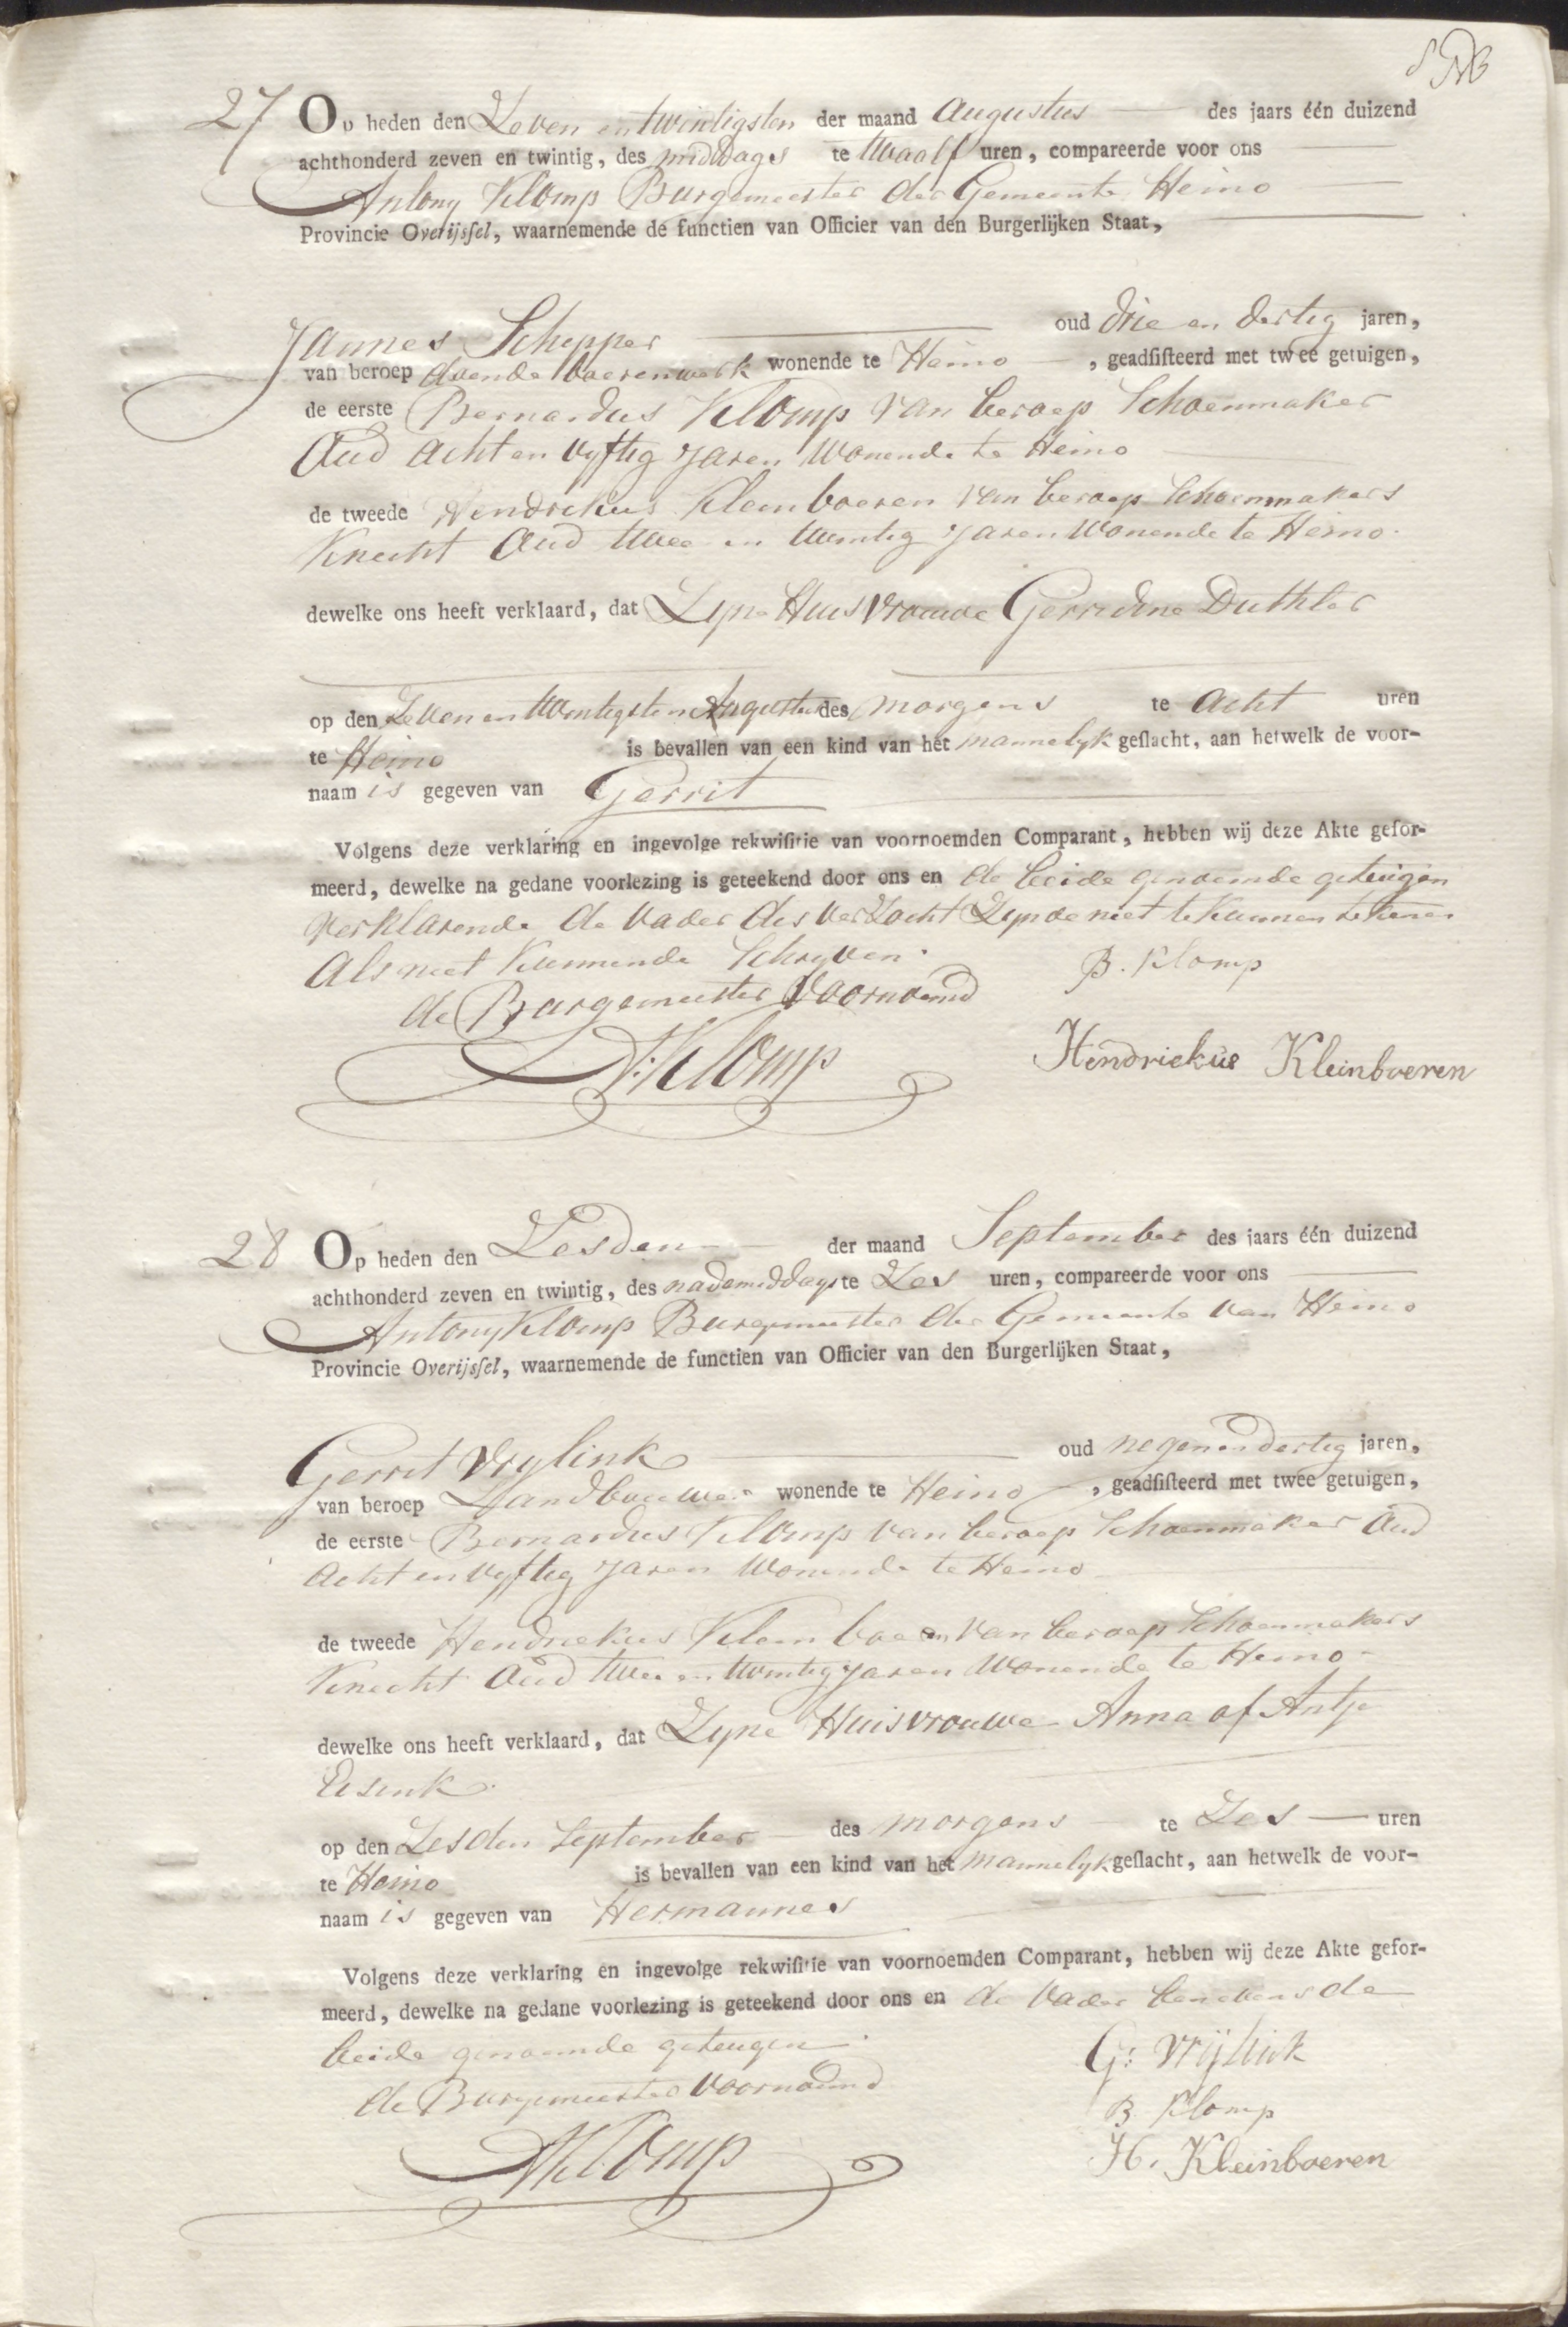 27 Op heden den Zeven en twintigsten der maand Augustus des jaars één duizend
achthonderd zeven en twintig, des middags te twaalf uren, compareerde voor ons
Antony Klomp Burgemeester der Gemeente Heino
Provincie Overijsſel, waarnemende de functien van Officier van den Burgerlijken Staat,
Jannes Schepper oud drie en dertig jaren,
van beroep doende boerenwerk wonende te Heino, geadſiſteerd met twee getuigen,
de eerste Bernardus Klomp van beroep Schoenmaker
Oud Acht en vyftig jaren Wonende te Heino
de tweede Hendrikus Kleinboeren van beroep Schoenmakers
Knecht Oud twee en twintig jaren Wonende te Heino.
dewelke ons heeft verklaard, dat Zyne Huisvrouwe Gerridina Duthler
op den Zeven en twintigsten Augustus des morgens te Acht uren
te Heino is bevallen van een kind van het mannelyk geſlacht, aan hetwelk de voor-
naam is gegeven van Gerrit
Volgens deze verklaring en ingevolge rekwiſitie van voornoemden Comparant, hebben wij deze Akte gefor-
meerd, dewelke na gedane voorlezing is geteekend door ons en de beide genoemde getuigen
verklarende de vader des verzocht Zynde niet te kunnen tekenen
als niet kunnende Schryven.
de Burgemeester voornoemd
B. Klomp
A. Klomp
Hendriekus Kleinboeren
28 Op heden den Zesden der maand September des jaars één duizend
achthonderd zeven en twintig, des nademiddags te Zes uren, compareerde voor ons
Antony Klomp Burgemeester der Gemeente van Heino
Provincie Overijsſel, waarnemende de functien van Officier van den Burgerlijken Staat,
Gerrit Vrylink oud negen en dertig jaren,
van beroep Landbouwer wonende te Heino, geadſiſteerd met twee getuigen,
de eerste Bernardus Klomp van beroep Schoenmaker Oud
Acht en vyftig jaren Wonende te Heino
de tweede Hendriekus Kleinboeren van beroep Schoenmakers
Knecht Oud twee en twintig jaren Wonende te Heino
dewelke ons heeft verklaard, dat Zyne Huisvrouwe Anna of Antje
Elsink.
op den Zesden September des morgens te Zes uren
te Heino is bevallen van een kind van het mannelyk geſlacht, aan hetwelk de voor-
naam is gegeven van Hermannes
Volgens deze verklaring en ingevolge rekwiſitie van voornoemden Comparant, hebben wij deze Akte gefor-
meerd, dewelke na gedane voorlezing is geteekend door ons en de vader benevens de
beide genoemde getuigen.
G: Vrijlink
de Burgemeester voornoemd
B. Klomp
A Klomp
H. Kleinboeren